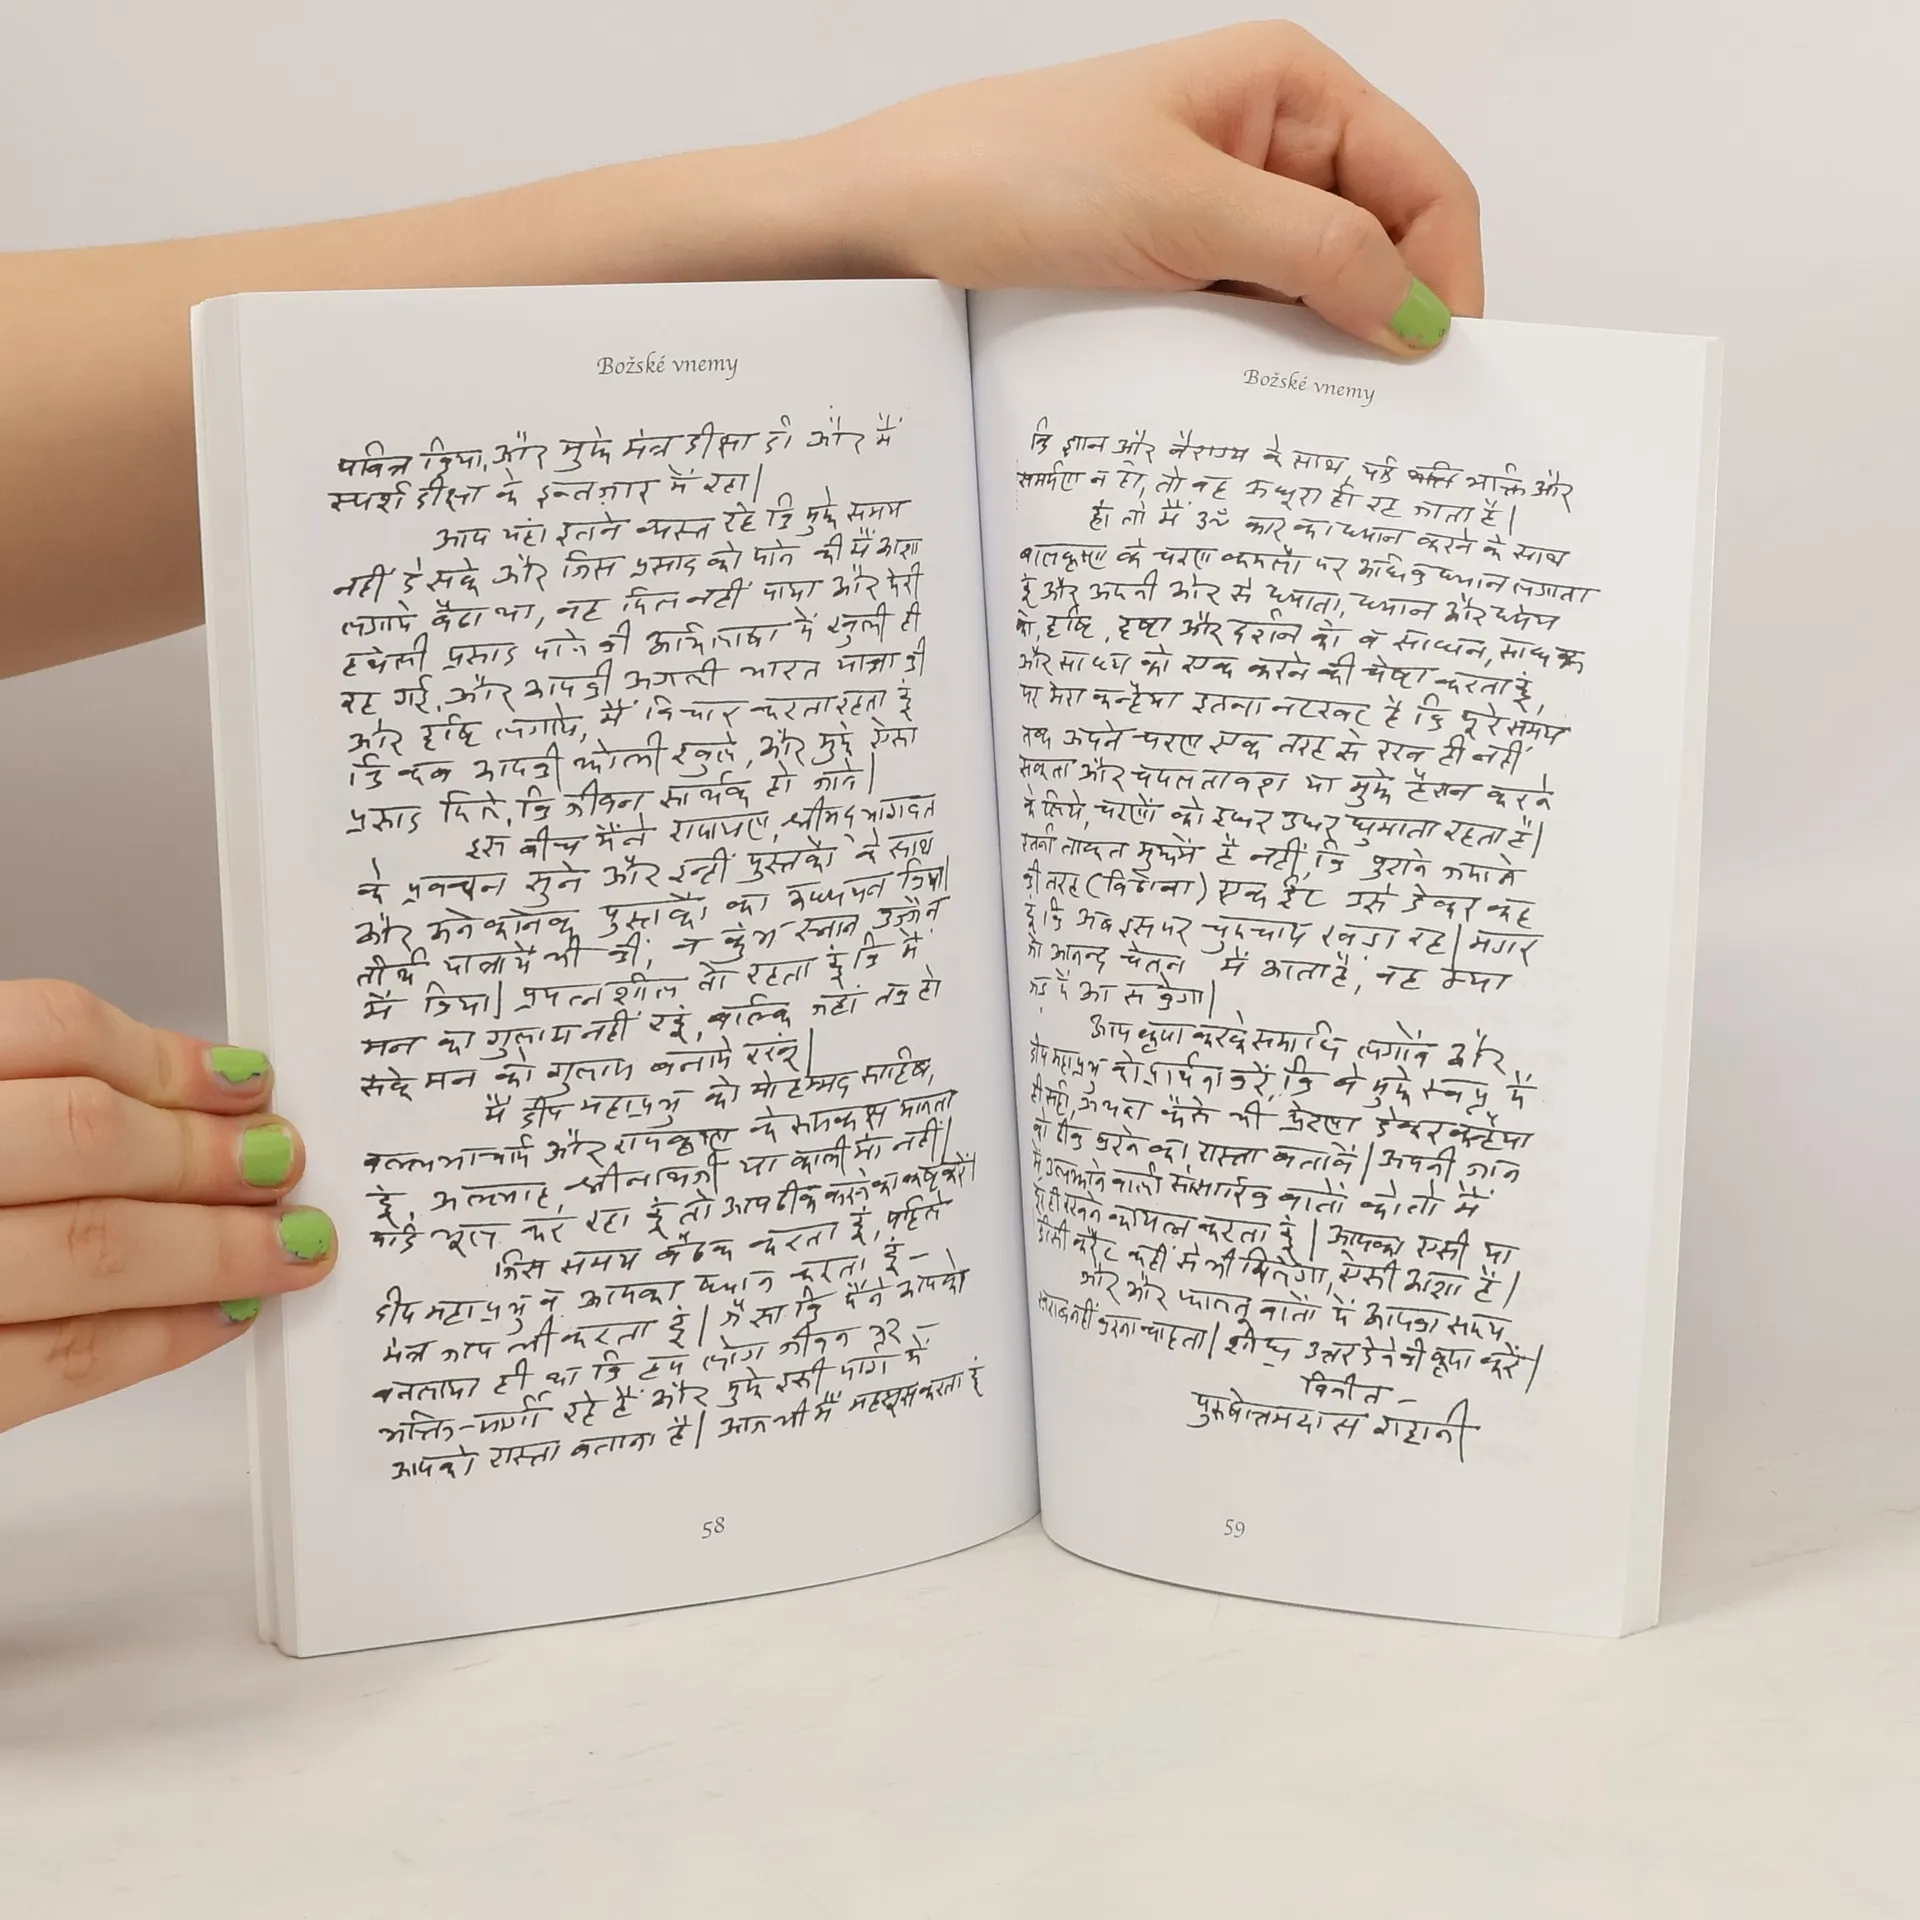 Božské vnemy
पवित्र किया, और मुझे मंत्र दीक्षा दी और मैं
स्पर्श दीक्षा के इन्तज़ार में रहा|
आप यहां इतने व्यस्त रहे कि मुझे समय
नहीं दे सके और जिस प्रसाद को पाने की मैं आशा
लगाये बैठा था, वह मिल नहीं पाया और मेरी
हथेली प्रसाद पाने की अभिलाषा में खुली ही
रह गई, और आपकी अगली भारत यात्रा की
ओर दृष्टि लगाये, मैं विचार करता रहता हूं
कि कब आपकी झोली खुले, और मुझे ऐसा
प्रसाद मिले, कि जीवन सार्थक हो जावे|
इस बीच मैंने रामायण, श्रीमद् भागवत
के प्रवचन सुने और इन्हीं पुस्तकों के साथ
और अनेकानेक पुस्तकों का अध्ययन किया|
तीर्थ यात्रायें भी की, व कुंभ स्नान उज्जैन
में किया| प्रयत्नशील तो रहता हूं कि मैं
मन का गुलाम नहीं रहूं, बल्कि जहां तक हो
सके मन को गुलाम बनाये रखूं|
मैं दीप महाप्रभु को मोहम्मद साहिब,
वल्लभाचार्य और रामकृष्ण के समकक्ष मानता
हूं, अल्लाह, श्रीनाथजी या काली मां नहीं|
यदि भूल कर रहा हूं तो आप ठीक करने का कष्ट करें|
जिस समय बैठक करता हूं, पहिले
दीप महाप्रभु व आपका ध्यान करता हूं –
मंत्र जाप भी करता हूं| जैसा कि मैंने आपको
बतलाया ही था कि हम लोग जीवन भर –
भक्ति-मार्गी रहे हैं और मुझे इसी मार्ग में
आपको रास्ता बताना है| आज भी मैं महसूस करता हूं
58
Božské vnemy
कि ज्ञान और वैराग्य के साथ, यदि भक्ति और
समर्पण न हो, तो वह अधूरा ही रह जाता है|
हां तो मैं ॐ कार का ध्यान करने के साथ
बालकृष्ण के चरण कमलों पर अधिक ध्यान लगाता
हूं और अपनी ओर से ध्याता, ध्यान और ध्येय
को, दृष्टि, दृष्टा और दर्शन को व साधन, साधक
और साध्य को एक करने की चेष्टा करता हूं,
पर मेरा कन्हैया इतना नटखट है कि पूरे समय
तक अपने चरण एक तरह से रख ही नहीं
सकता और चपलतावश या मुझे हैरान करने
के लिये, चरणों को इधर उधर घुमाता रहता है|
इतनी ताकत मुझमें है नहीं, कि पुराने जमाने
की तरह (विठोबा) एक ईंट उसे देकर कह
दूं कि अब इस पर चुपचाप खड़ा रह| मगर
जो आनन्द चेतन में आता है, वह क्या
जड़ में आ सकेगा|
आप कृपा करके समाधि लगावें और
दीप महाप्रभु को प्रार्थना करें, कि वे मुझे स्वप्न में
ही सही, अथवा कैसे भी प्रेरणा देकर कन्हैया
को ठीक करने का रास्ता बतावें| अपनी जान
में उलझाने वाली सांसारिक बातों को तो मैं
दूर ही रखने का यत्न करता हूं| आपका ऐसी या
डीसी करैंट कहीं से भी मिलेगा, ऐसी आशा है|
और और फालतू बातों में आपका समय
खराब नहीं करना चाहता| शीघ्र उत्तर देने की कृपा करें|
विनीत –
पुरुषोत्तमदास राहानी
59